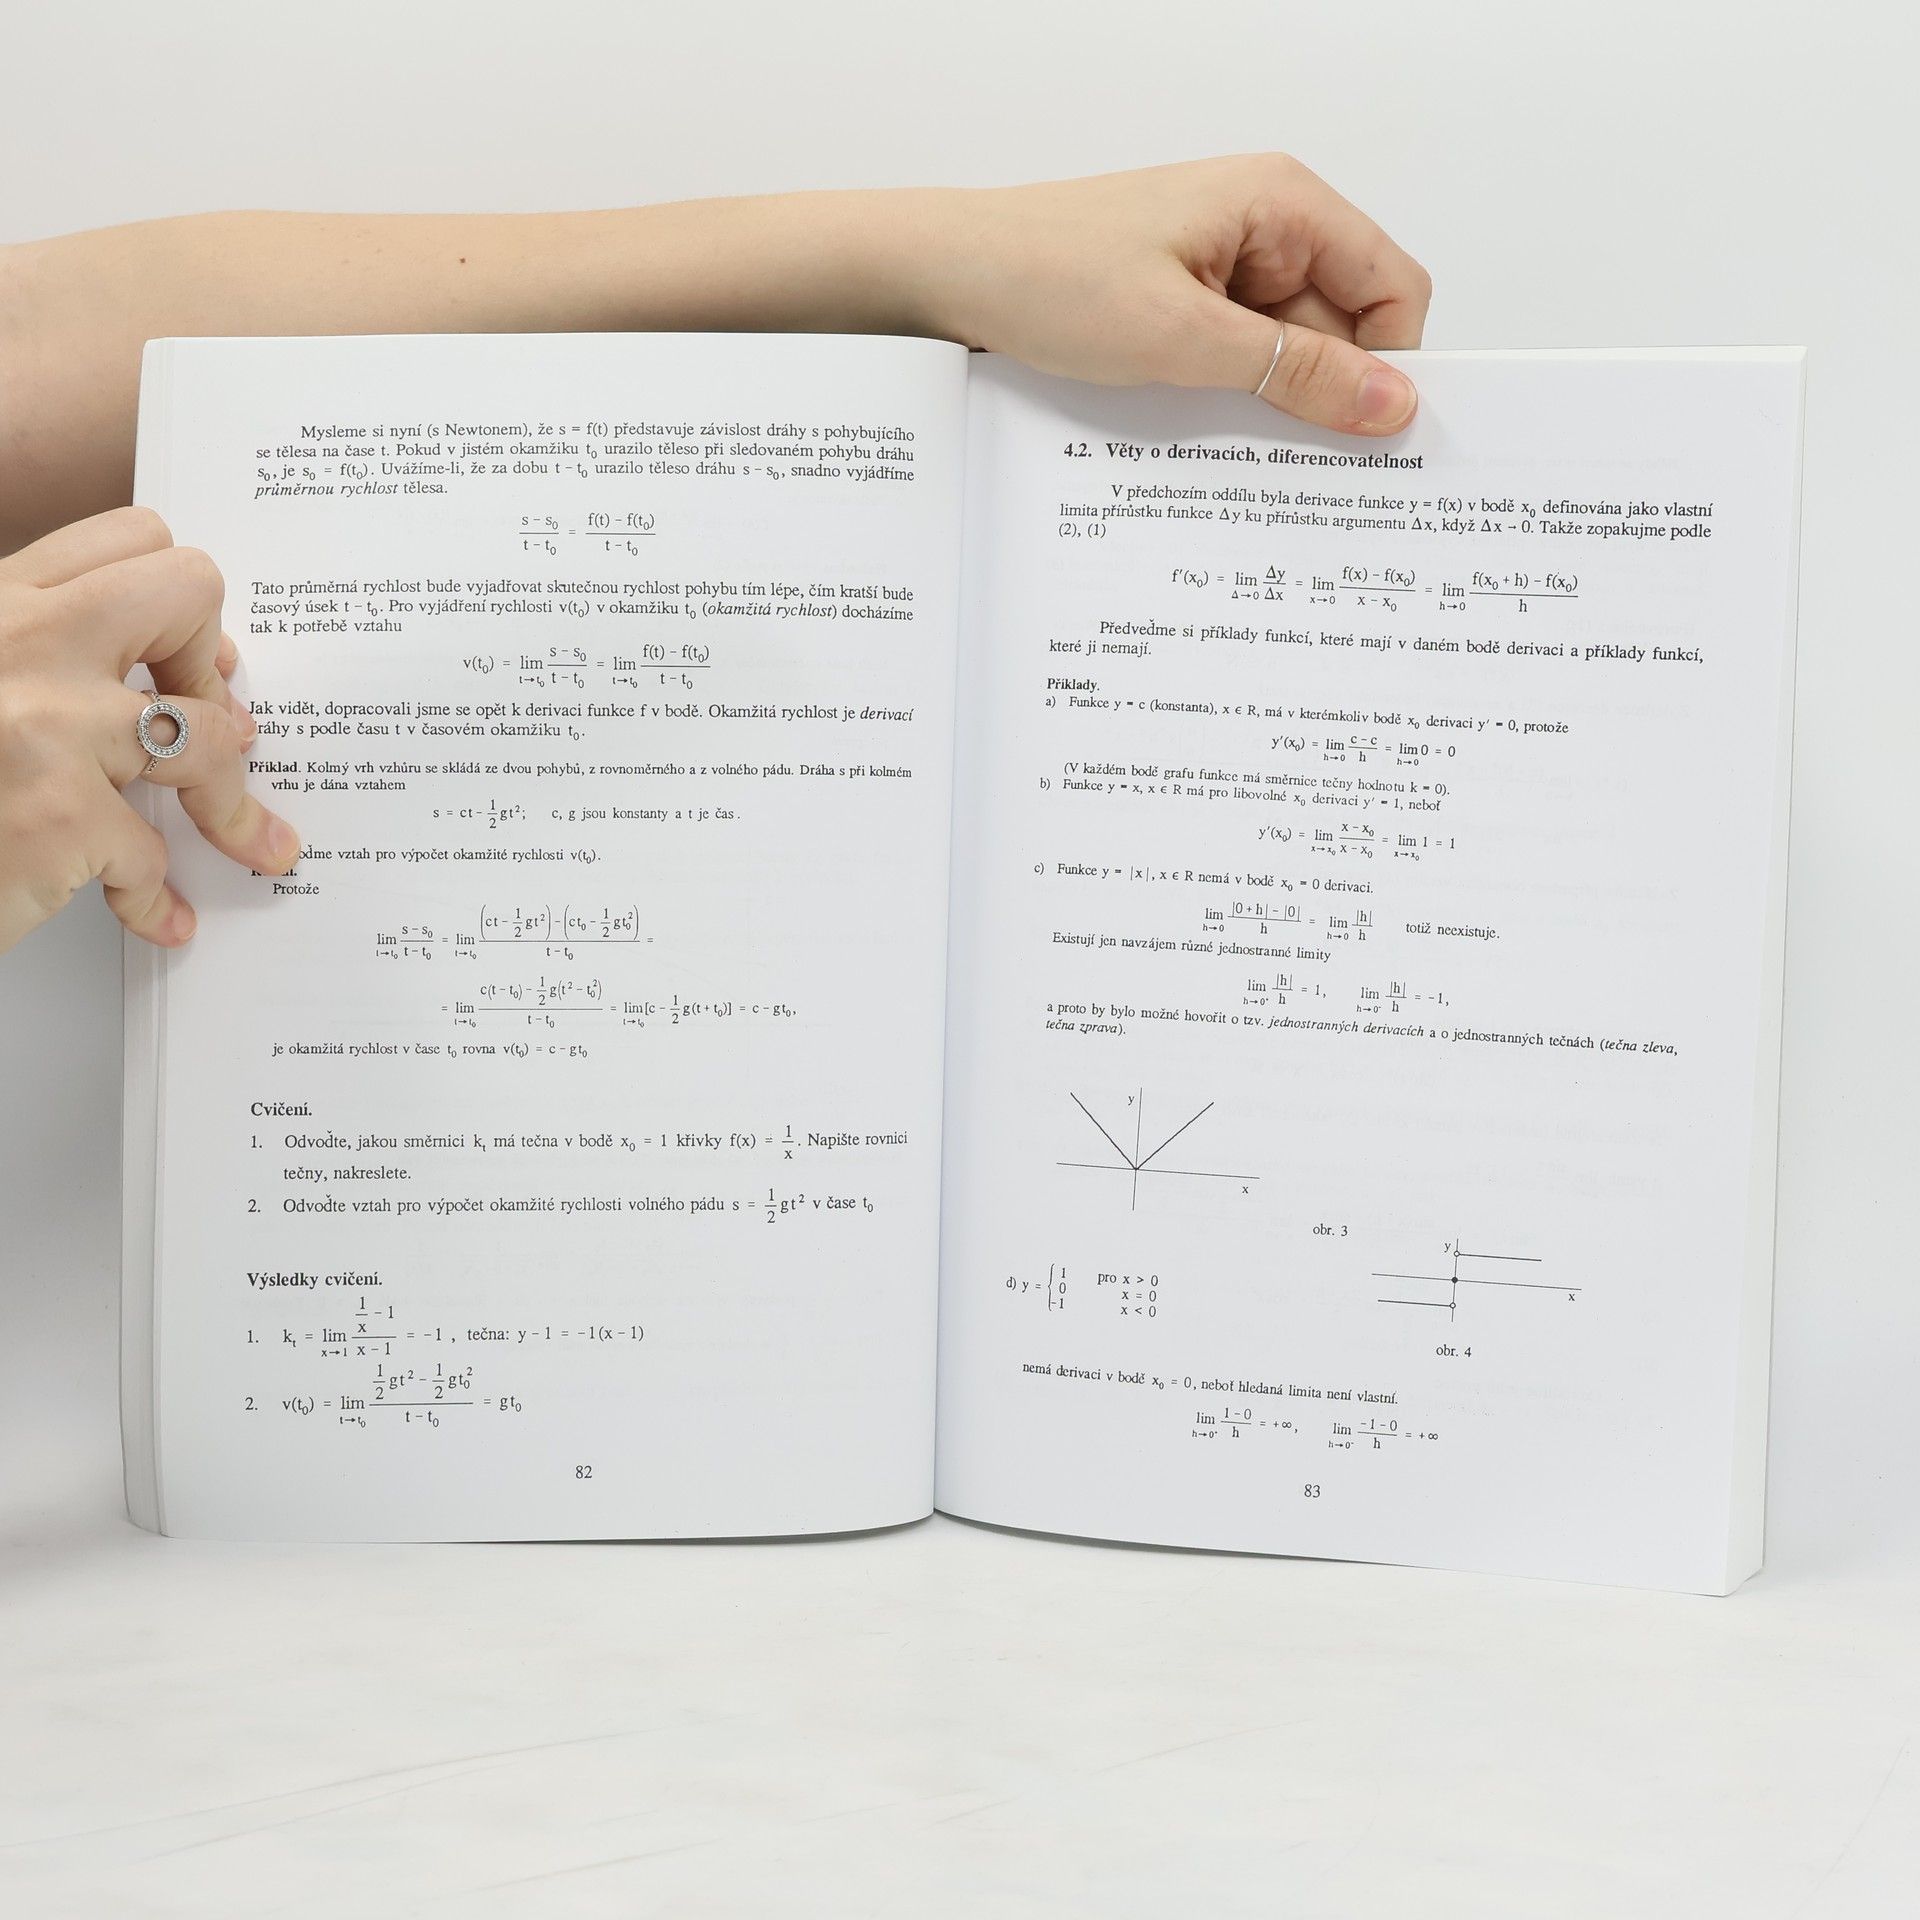 Mysleme si nyní (s Newtonem), že s = f(t) představuje závislost dráhy s pohybujícího
se tělesa na čase t. Pokud v jistém okamžiku t₀ urazilo těleso při sledovaném pohybu dráhu
s₀, je s₀ = f(t₀). Uvážíme-li, že za dobu t − t₀ urazilo těleso dráhu s − s₀, snadno vyjádříme
průměrnou rychlost tělesa.
(s − s₀)/(t − t₀) = (f(t) − f(t₀))/(t − t₀)
Tato průměrná rychlost bude vyjadřovat skutečnou rychlost pohybu tím lépe, čím kratší bude
časový úsek t − t₀. Pro vyjádření rychlosti v(t₀) v okamžiku t₀ (okamžitá rychlost) docházíme
tak k potřebě vztahu
v(t₀) = lim t→t₀ (s − s₀)/(t − t₀) = lim t→t₀ (f(t) − f(t₀))/(t − t₀)
Jak vidět, dopracovali jsme se opět k derivaci funkce f v bodě. Okamžitá rychlost je derivací
dráhy s podle času t v časovém okamžiku t₀.
Příklad. Kolmý vrh vzhůru se skládá ze dvou pohybů, z rovnoměrného a z volného pádu. Dráha s při kolmém
vrhu je dána vztahem
s = ct − 1/2 gt²; c, g jsou konstanty a t je čas.
vztah pro výpočet okamžité rychlosti v(t₀).
Protože
lim t→t₀ (s − s₀)/(t − t₀) = lim t→t₀ ((ct − 1/2 gt²) − (ct₀ − 1/2 gt₀²))/(t − t₀) =
= lim t→t₀ (c(t − t₀) − 1/2 g(t² − t₀²))/(t − t₀) = lim t→t₀ [c − 1/2 g(t + t₀)] = c − gt₀,
je okamžitá rychlost v čase t₀ rovna v(t₀) = c − gt₀
Cvičení.
1. Odvoďte, jakou směrnici kₜ má tečna v bodě x₀ = 1 křivky f(x) = 1/x. Napište rovnici
tečny, nakreslete.
2. Odvoďte vztah pro výpočet okamžité rychlosti volného pádu s = 1/2 gt² v čase t₀
Výsledky cvičení.
1. kₜ = lim x→1 (1/x − 1)/(x − 1) = −1 , tečna: y − 1 = −1(x − 1)
2. v(t₀) = lim t→t₀ (1/2 gt² − 1/2 gt₀²)/(t − t₀) = gt₀
82
4.2. Věty o derivacích, diferencovatelnost
V předchozím oddílu byla derivace funkce y = f(x) v bodě x₀ definována jako vlastní
limita přírůstku funkce Δy ku přírůstku argumentu Δx, když Δx → 0. Takže zopakujme podle
(2), (1)
f′(x₀) = lim Δ→0 Δy/Δx = lim x→0 (f(x) − f(x₀))/(x − x₀) = lim h→0 (f(x₀ + h) − f(x₀))/h
Předveďme si příklady funkcí, které mají v daném bodě derivaci a příklady funkcí,
které ji nemají.
Příklady.
a) Funkce y = c (konstanta), x ∈ R, má v kterémkoliv bodě x₀ derivaci y′ = 0, protože
y′(x₀) = lim h→0 (c − c)/h = lim h→0 0 = 0
(V každém bodě grafu funkce má směrnice tečny hodnotu k = 0).
b) Funkce y = x, x ∈ R má pro libovolné x₀ derivaci y′ = 1, neboť
y′(x₀) = lim x→x₀ (x − x₀)/(x − x₀) = lim x→x₀ 1 = 1
c) Funkce y = |x|, x ∈ R nemá v bodě x₀ = 0 derivaci.
lim h→0 (|0 + h| − |0|)/h = lim h→0 |h|/h totiž neexistuje.
Existují jen navzájem různé jednostranné limity
lim h→0⁺ |h|/h = 1, lim h→0⁻ |h|/h = −1,
a proto by bylo možné hovořit o tzv. jednostranných derivacích a o jednostranných tečnách (tečna zleva,
tečna zprava).
y
x
obr. 3
d) y = { 1 pro x > 0
0 x = 0
−1 x < 0
y
x
obr. 4
nemá derivaci v bodě x₀ = 0, neboť hledaná limita není vlastní.
lim h→0⁺ (1 − 0)/h = +∞, lim h→0⁻ (−1 − 0)/h = +∞
83